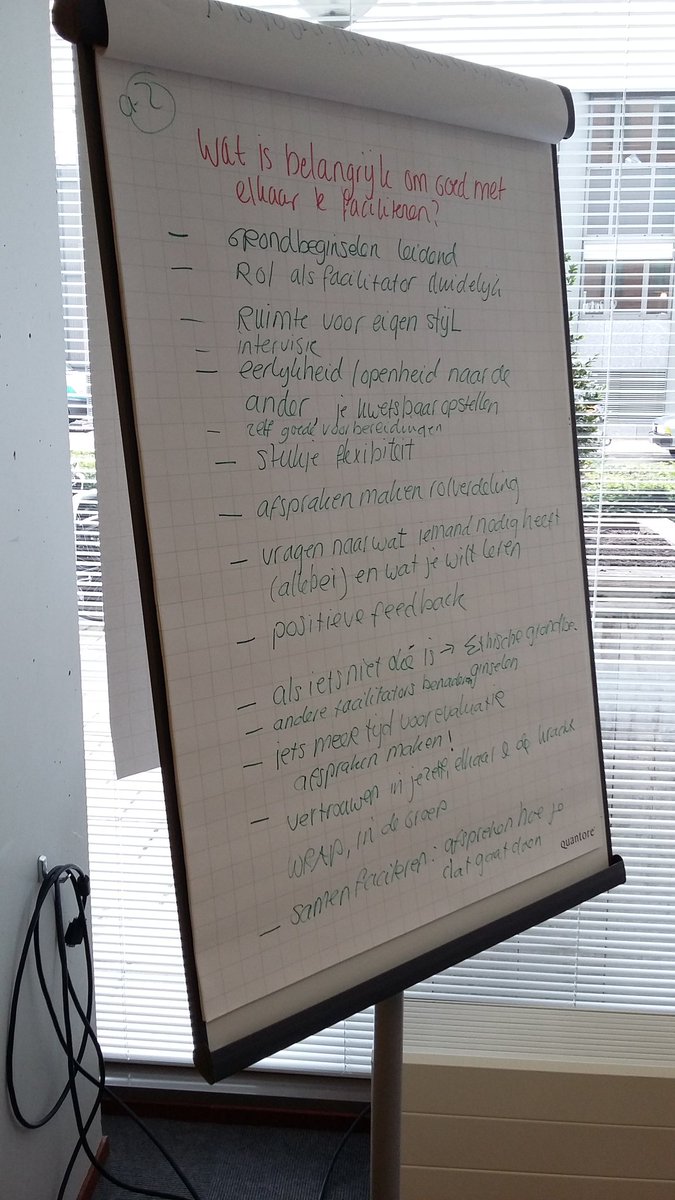 a.2
Wat is belangrijk om goed met
elkaar te faciliteren?
- Grondbeginselen leidend
- Rol als facilitator duidelijk
- Ruimte voor eigen stijl
- intervisie
- eerlijkheid / openheid naar de
ander je kwetsbaar opstellen
- zelf goede voorbereidingen
- stukje flexibiteit
- afspraken maken rolverdeling
- vragen naar wat iemand nodig heeft
(allebei) en wat je wilt leren
- positieve feedback
- als iets niet oké is → Ethische grondbe
ginselen
- andere facilitators benaderen
- iets meer tijd voor evaluatie
afspraken maken!
- vertrouwen in jezelf, elkaar & de kracht
WRAP, in de groep
- samen faciliteren: afspreken hoe je
dat gaat doen
quantore